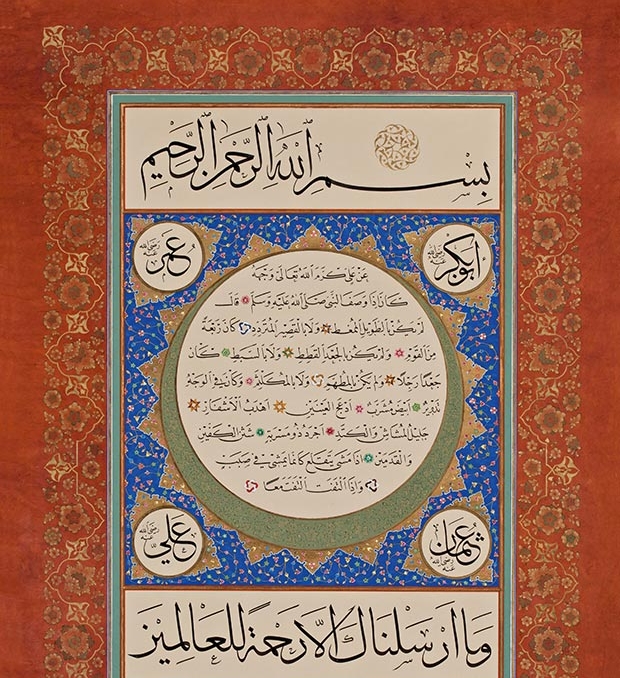 بسم الله الرحمن الرحيم
ابوبكر رضي الله عنه
عمر رضي الله عنه
عن علي كرم الله تعالى وجهه
كان اذا وصف النبي صلى الله عليه وسلم قال
لم يكن بالطويل الممغط ولا بالقصير المتردد كان ربعة
من القوم ولم يكن بالجعد القطط ولا بالسبط كان
جعدا رجلا ولم يكن بالمطهم ولا بالمكلثم وكان في الوجه
تدوير ابيض مشرب ادعج العينين اهدب الاشفار
جليل المشاش والكتد اجرد ذو مسربة شثن الكفين
والقدمين اذا مشى يتقلع كانما يمشي في صبب
واذا التفت التفت معا
عثمان رضي الله عنه
علي رضي الله عنه
وما ارسلناك الا رحمة للعالمين